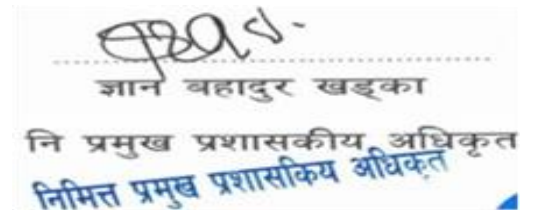 ज्ञान बहादुर खड्का
नि प्रमुख प्रशासकीय अधिकृत
निमित्त प्रमुख प्रशासकिय अधिकृत